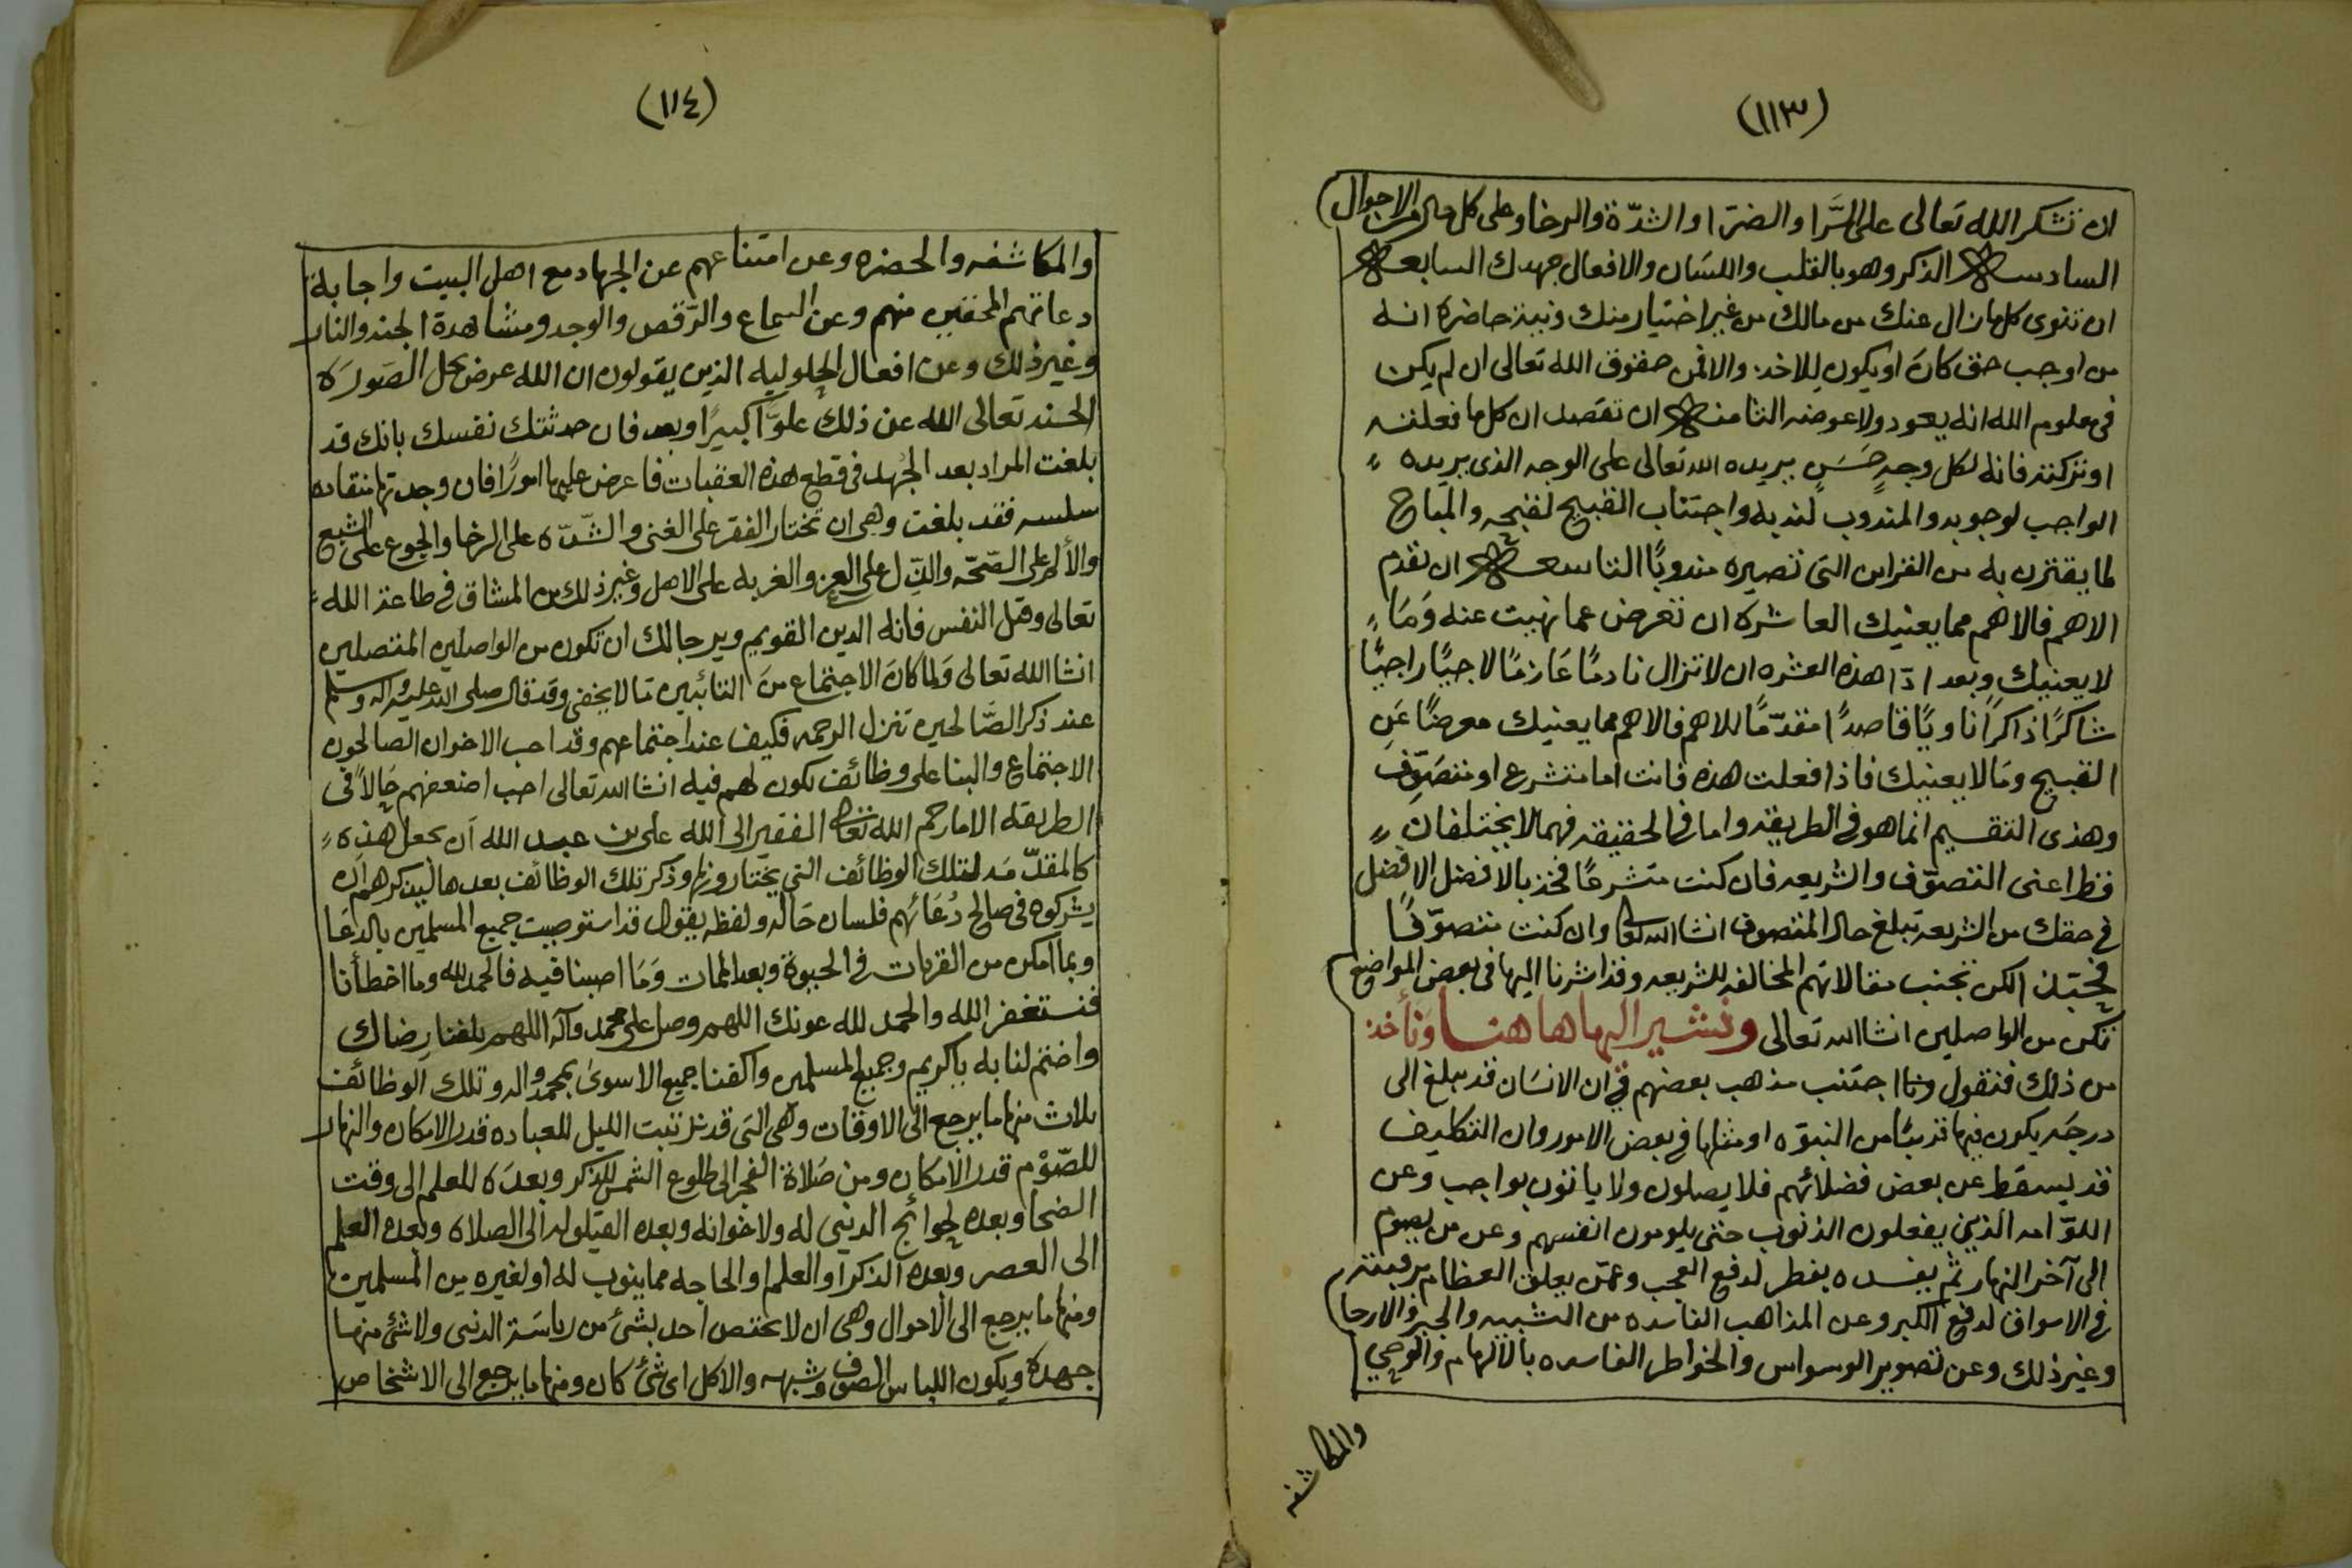 (١١٣)
ان تشكر الله تعالى على السَّرا والضرّا والشدّة والرخا وعلى كل حال من الاحوال
السادسه الذكر وهو بالقلب واللسَان والافعال جهدك السابعه
ان تنوي كل ما زال عنك من مالك من غير اختيار منك ونية حاضرة انه
من اوجب حق كانَ او يكون للاخذ والا فمن حقوق الله تعالى ان لم يكن
في معلوم الله انه يعود ولا عوضه الثامنه ان تقصد ان كل ما فعلته
او تركته فانه لكل وجهٍ حَسَنٍ يريده الله تعالى على الوجه الذي يريده
الواجب لوجوبه والمندوب لندبه واجتناب القبيح لقبحه والمباح
لما يقترن به من القراين التي تصيره مندوبًا التاسعه ان تقدم
الاهم فالاهم مما يعنيك العاشرة ان تعرض عما نهيت عنه وَمَا
لا يعنيك وبعد اذا هذه العشره ان لا تزال نادمًا عَازمًا لاجيًا راجيًا
شاكرًا ذاكرًا ناويًا قاصدًا مقدّمًا للاهم فالاهم مما يعنيك معرضًا عَنِ
القبيح ومَا لا يعنيك فاذا فعلت هذه فانت اما متشرع او متصَوِّف
وهذى التقسيم انما هو في الطريقه واما في الحقيقه فهما لا يختلفان
قط اعنى التصوّف والشريعه فان كنت متشرعًا فخذ بالافضل الافضل
في حقك من الشريعه تبلغ حال المتصوف انشا الله تعالى وان كنت متصوّفًا
لكن تجنب مقالاتهم المخالفه للشريعه وقد اشرنا اليها في بعض المواضع
تكن من الواصلين انشا الله تعالى ونشير اليها ها هنا وَنأخذ
من ذلك فنقول اجتنب مذهب بعضهم في ان الانسَان قد يبلغ الى
درجَة يكون فيها قريبًا من النبوّه او مثلها في بعض الامور وان التكاليف
قد يسقط عن بعض فضلائهم فلا يصلون ولا ياتون بواجب وعن
اللوّامه الذين يفعلون الذنوب حتى يلومون انفسهم وعن من يصوم
الى آخر النهار ثم يفسده يفطر لدفع العجب وعمّن يعلق العظام برقبته
في الاسواق لدفع الكبر وعن المذاهب الفاسده من التشبيه والجبر والارجا
وغير ذلك وعن تصوير الوسواس والخواطر الفاسده بالالهام والوحي
والمكاشفه
(١١٤)
والمكاشفه والحضره وعن امتناعهم عن الجهاد مع اهل البيت واجابة
دعاتهم المحقين منهم وعن السماع والرّقص والوجد ومشاهدة الجنه والنار
وغير ذلك وعن افعال الحلوليه الذين يقولون ان الله عرض يحل الصَورَة
الحسنه تعالى الله عن ذلك علوّا كبيرًا وبعد فان حدثتك نفسك بانك قد
بلغت المراد بعد الجُهد في قطع هذه العقبات فاعرض عليها امورًا فان وجدتها منقاده
سلسه فقد بلغت وهي ان تختار الفقر على الغنى والشّدّه على الرخا والجوع على الشبع
والألم على الصّحّه والذّل على العز والغربه على الاهل وغير ذلك من المشاق في طاعة الله
تعالى وقتل النفس فانه الدين القويم ويرجا لك ان تكون من الواصلين المتصلين
انشا الله تعالى وَلما كانَ الاجتماع منَ التائبين مَا لا يخفى وقد قال صلى الله عليه وآله وسلم
عند ذكر الصَّالحين تنزل الرحمه فكيف عند اجتماعهم وقد احب الاخوان الصالحون
الاجتماع والبنا على وظائف تكون لهم فيه انشا الله تعالى احب اضعفهم حَالاً في
الطريقه الا مارحم الله تعالى الفقير الى الله على بن عبد الله أن يجعل هذه
كالمقدّمَه لتلك الوظائف التي يختارونها وذكر تلك الوظائف بعدها ليذكرهم ان
يشركوه في صالح دُعَائهم فلسان حَاله ولفظه يقول قد استوصيت جميع المسلمين بالدعَا
وبما امكن من القربات في الحيوة وبعد الممات وَمَا اصبنا فيه فالحمد لله وما اخطأنا
فنستغفر الله والحمد لله عونك اللهم وصل على محمد وآله اللهم بلغنا رِضاك
واختم لنا به ياكريم وجميع المسلمين واكفنا جميع الاسوىٰ بمحمد واله وتلك الوظائف
ثلاث منها ما يرجع الى الاوقات وهي التي قد ترتبت الليل للعباده قدر الامكان والنهار
للصّوْم قدر الامكان ومن صَلاة الفجر الى طلوع الشمس للذكر وبعدَه للعلم الى وقت
الضحا وبعده لحوائج الدنيى له ولاخوانه وبعده القيلوله الى الصلاه وبعده العلم
الى العصر وبعده الذكر او العلم او الحاجه مما ينوب له او لغيره من المسلمين
ومنها ما يرجع الى الاحوال وهي ان لا يختص احد بشئ من رياسَة الدنيى ولا شئ منها
جهدهَ ويكون اللباس الصوف وشبهه والاكل اي شئ كان ومنها ما يرجع الى الاشخاص